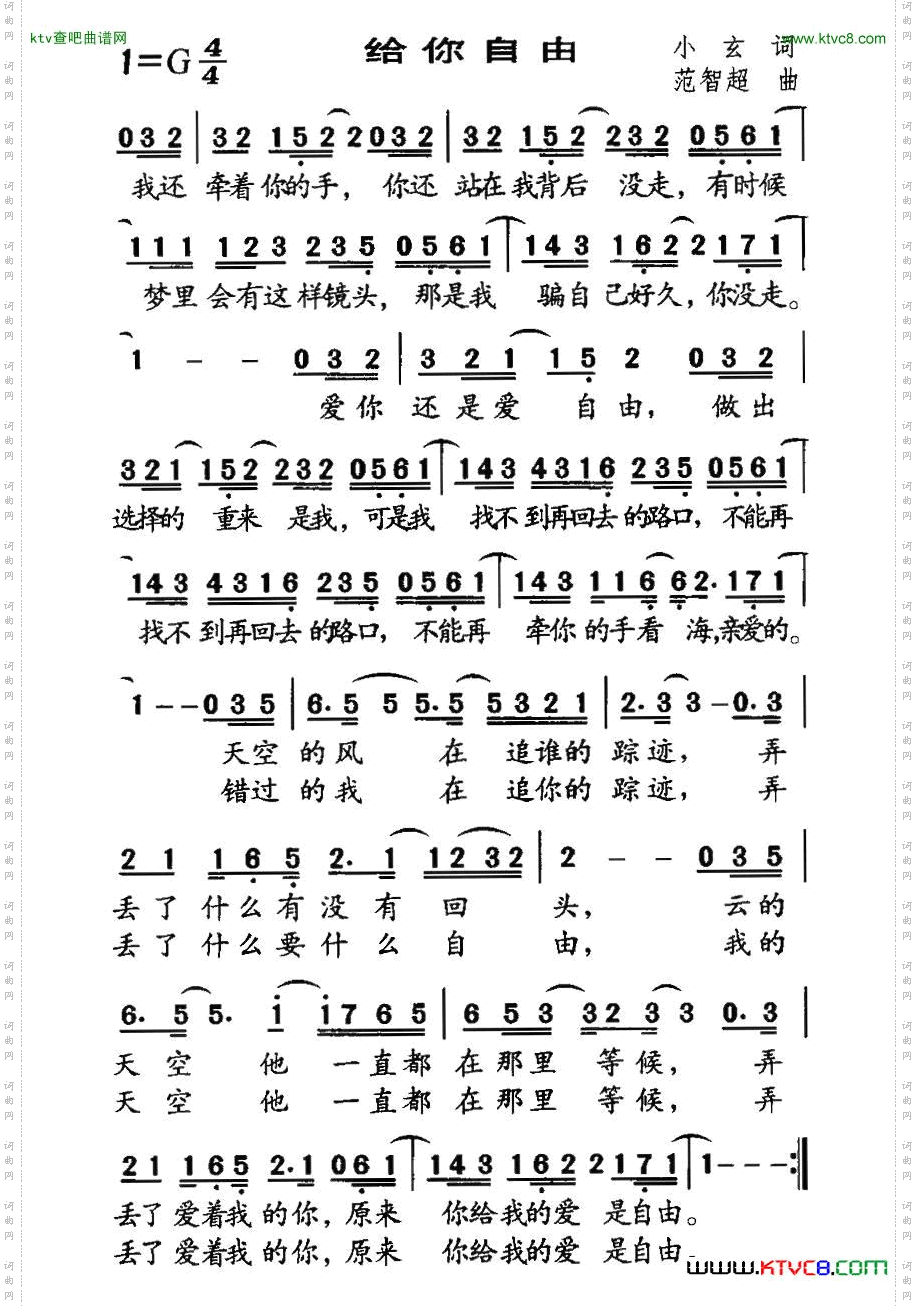 ktv查吧曲谱网
www.ktvc8.com
1=G 4/4
给你自由
小玄 词
范智超 曲
032 | 32 152 2032 | 32 152 232 0561 |
我还 牵着你的手, 你还 站在我背后 没走, 有时候
111 123 235 0561 | 143 162 2 171 |
梦里 会有这样镜头, 那是我 骗自己好久, 你没走。
1 - - 032 | 3 21 15 2 032 |
爱你 还是爱 自由, 做出
321 152 232 0561 | 143 4316 235 0561 |
选择的 重来 是我, 可是我 找不到再回去的路口, 不能再
143 4316 235 0561 | 143 116 62. 171 |
找不到再回去的路口, 不能再 牵你的手看 海,亲爱的。
1 - - 035 | 6.5 5 5.5 5321 | 2.3 3 - 0.3 |
天空的风 在 追谁的 踪迹, 弄
错过的我 在 追你的 踪迹, 弄
21 165 2.1 1232 | 2 - - 035 |
丢了什么有没有 回 头, 云的
丢了什么要什么 自 由, 我的
6.5 5. i i765 | 653 323 3 0.3 |
天空 他 一直都在那里 等候, 弄
天空 他 一直都在那里 等候, 弄
21 165 2.1 061 | 143 162 2171 | 1 - - - :||
丢了爱着我的你, 原来 你给我的爱 是自由。
丢了爱着我的你, 原来 你给我的爱 是自由
www.KTVC8.com